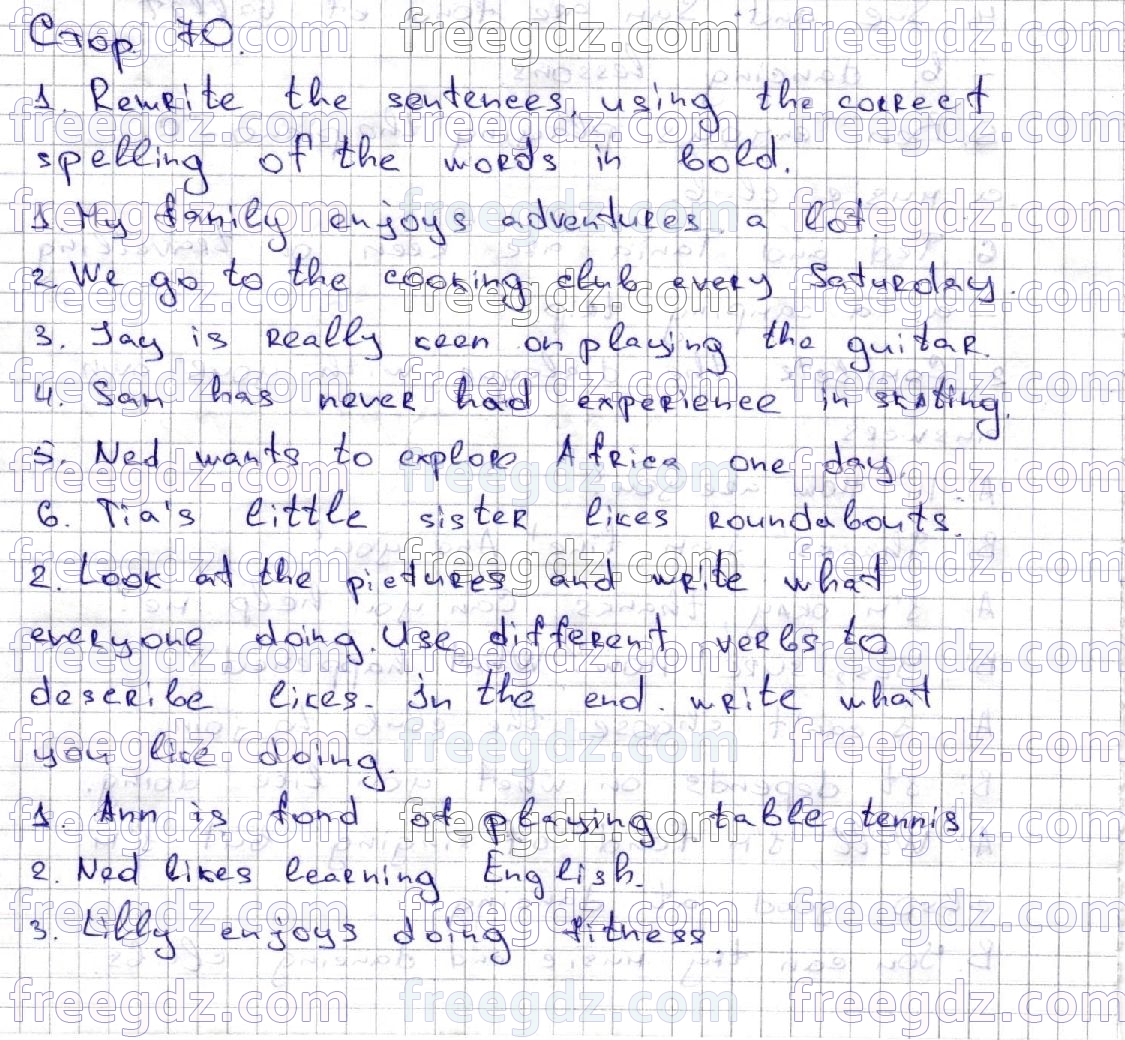 Стор 70.
1. Rewrite the sentences, using the correct
spelling of the words in bold.
1. My family enjoys adventures a lot.
2. We go to the cooking club every Saturday.
3. Jay is really keen on playing the guitar.
4. Sam has never had experience in skating.
5. Ned wants to explore Africa one day
6. Tia's little sister likes roundabouts.
2. Look at the pictures and write what
everyone doing. Use different verbs to
describe likes. In the end. write what
you like doing.
1. Ann is fond of playing table tennis.
2. Ned likes learning English.
3. Lilly enjoys doing fitness.
freegdz.com